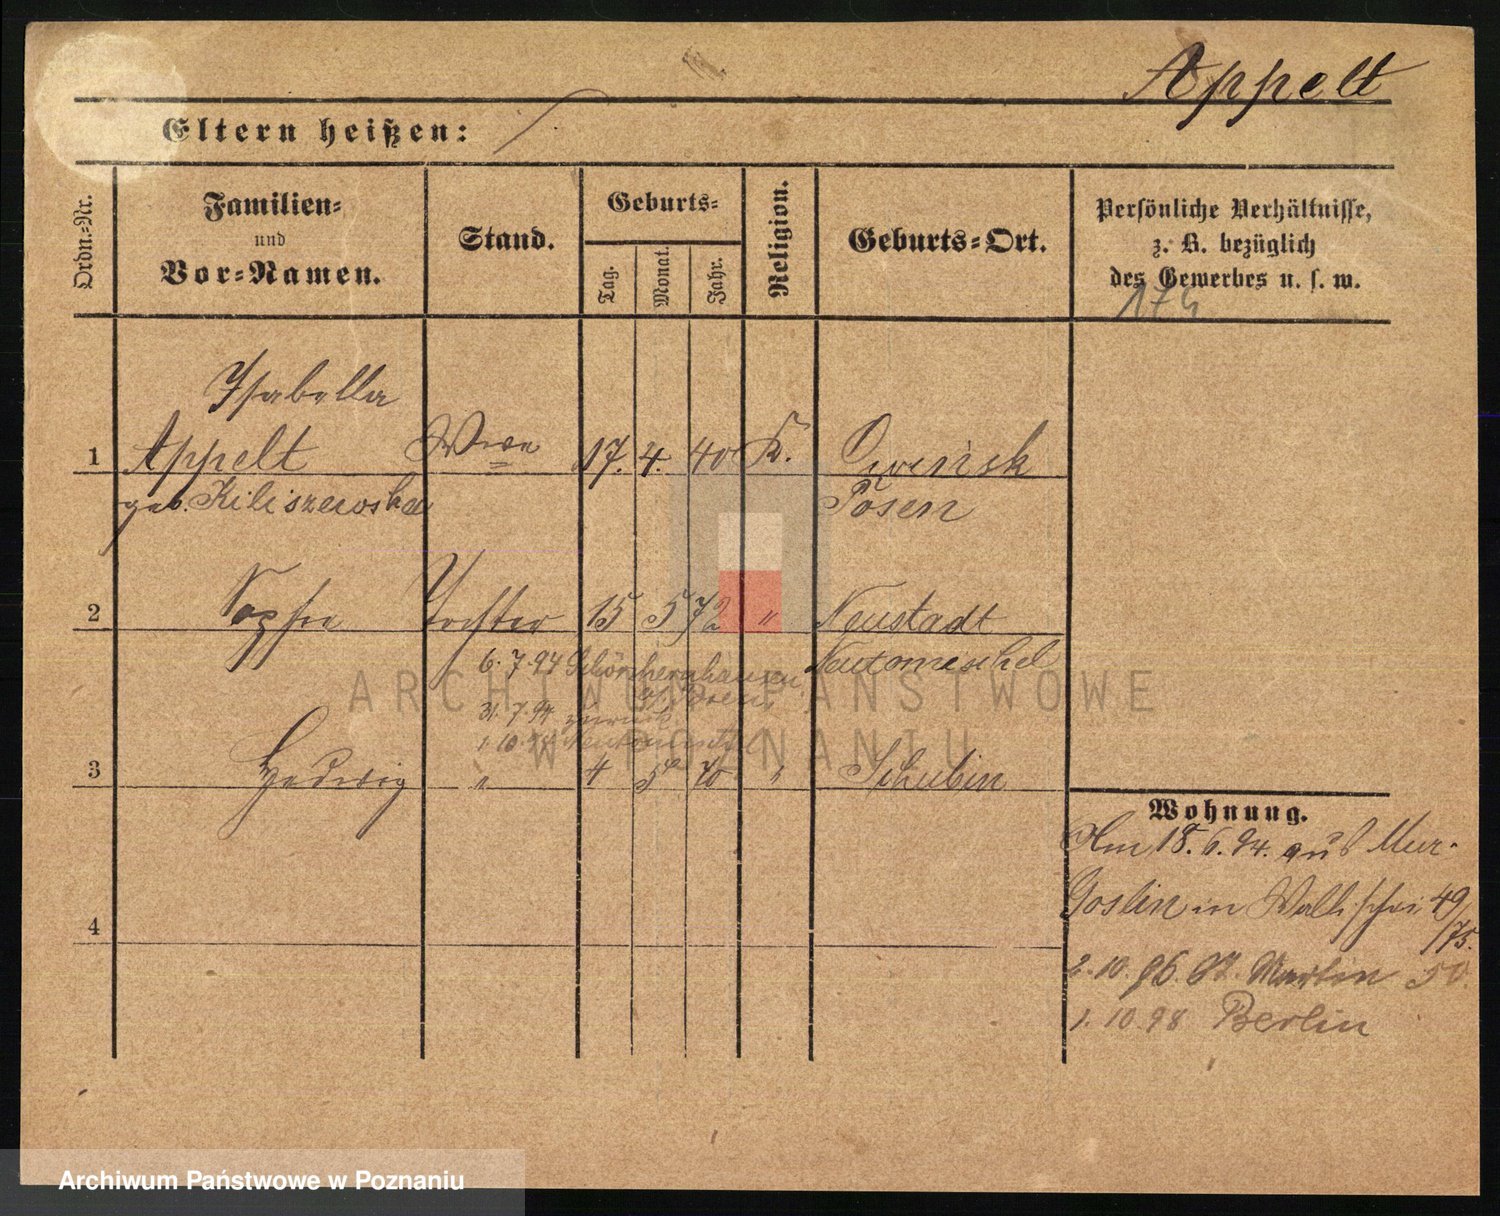 Appelt
Eltern heißen:
Ordn.-Nr.
Familien-
und
Vor-Namen.
Stand.
Geburts-
Tag.
Monat.
Jahr.
Religion.
Geburts-Ort.
Persönliche Verhältnisse,
z. B. bezüglich
des Gewerbes u. s. w.
174
Isabella
1 Appelt Wwe 17. 4. 40 K. Owinsk
geb. Kiliszewska Posen
2 Sophie Tochter 15 5 72 " Neustadt
6. 7. 94 Neutomischel
31. 7. 94 zurück
1. 10.
3 Hedwig " 4 5 70 " Schubin
Wohnung.
Am 18. 6. 94. aus Mur.
Goslin in Wallischei 49/75.
4
2. 10. 96. St. Martin 50.
1. 10. 98 Berlin
ARCHIWUM PAŃSTWOWE
W POZNANIU
Archiwum Państwowe w Poznaniu